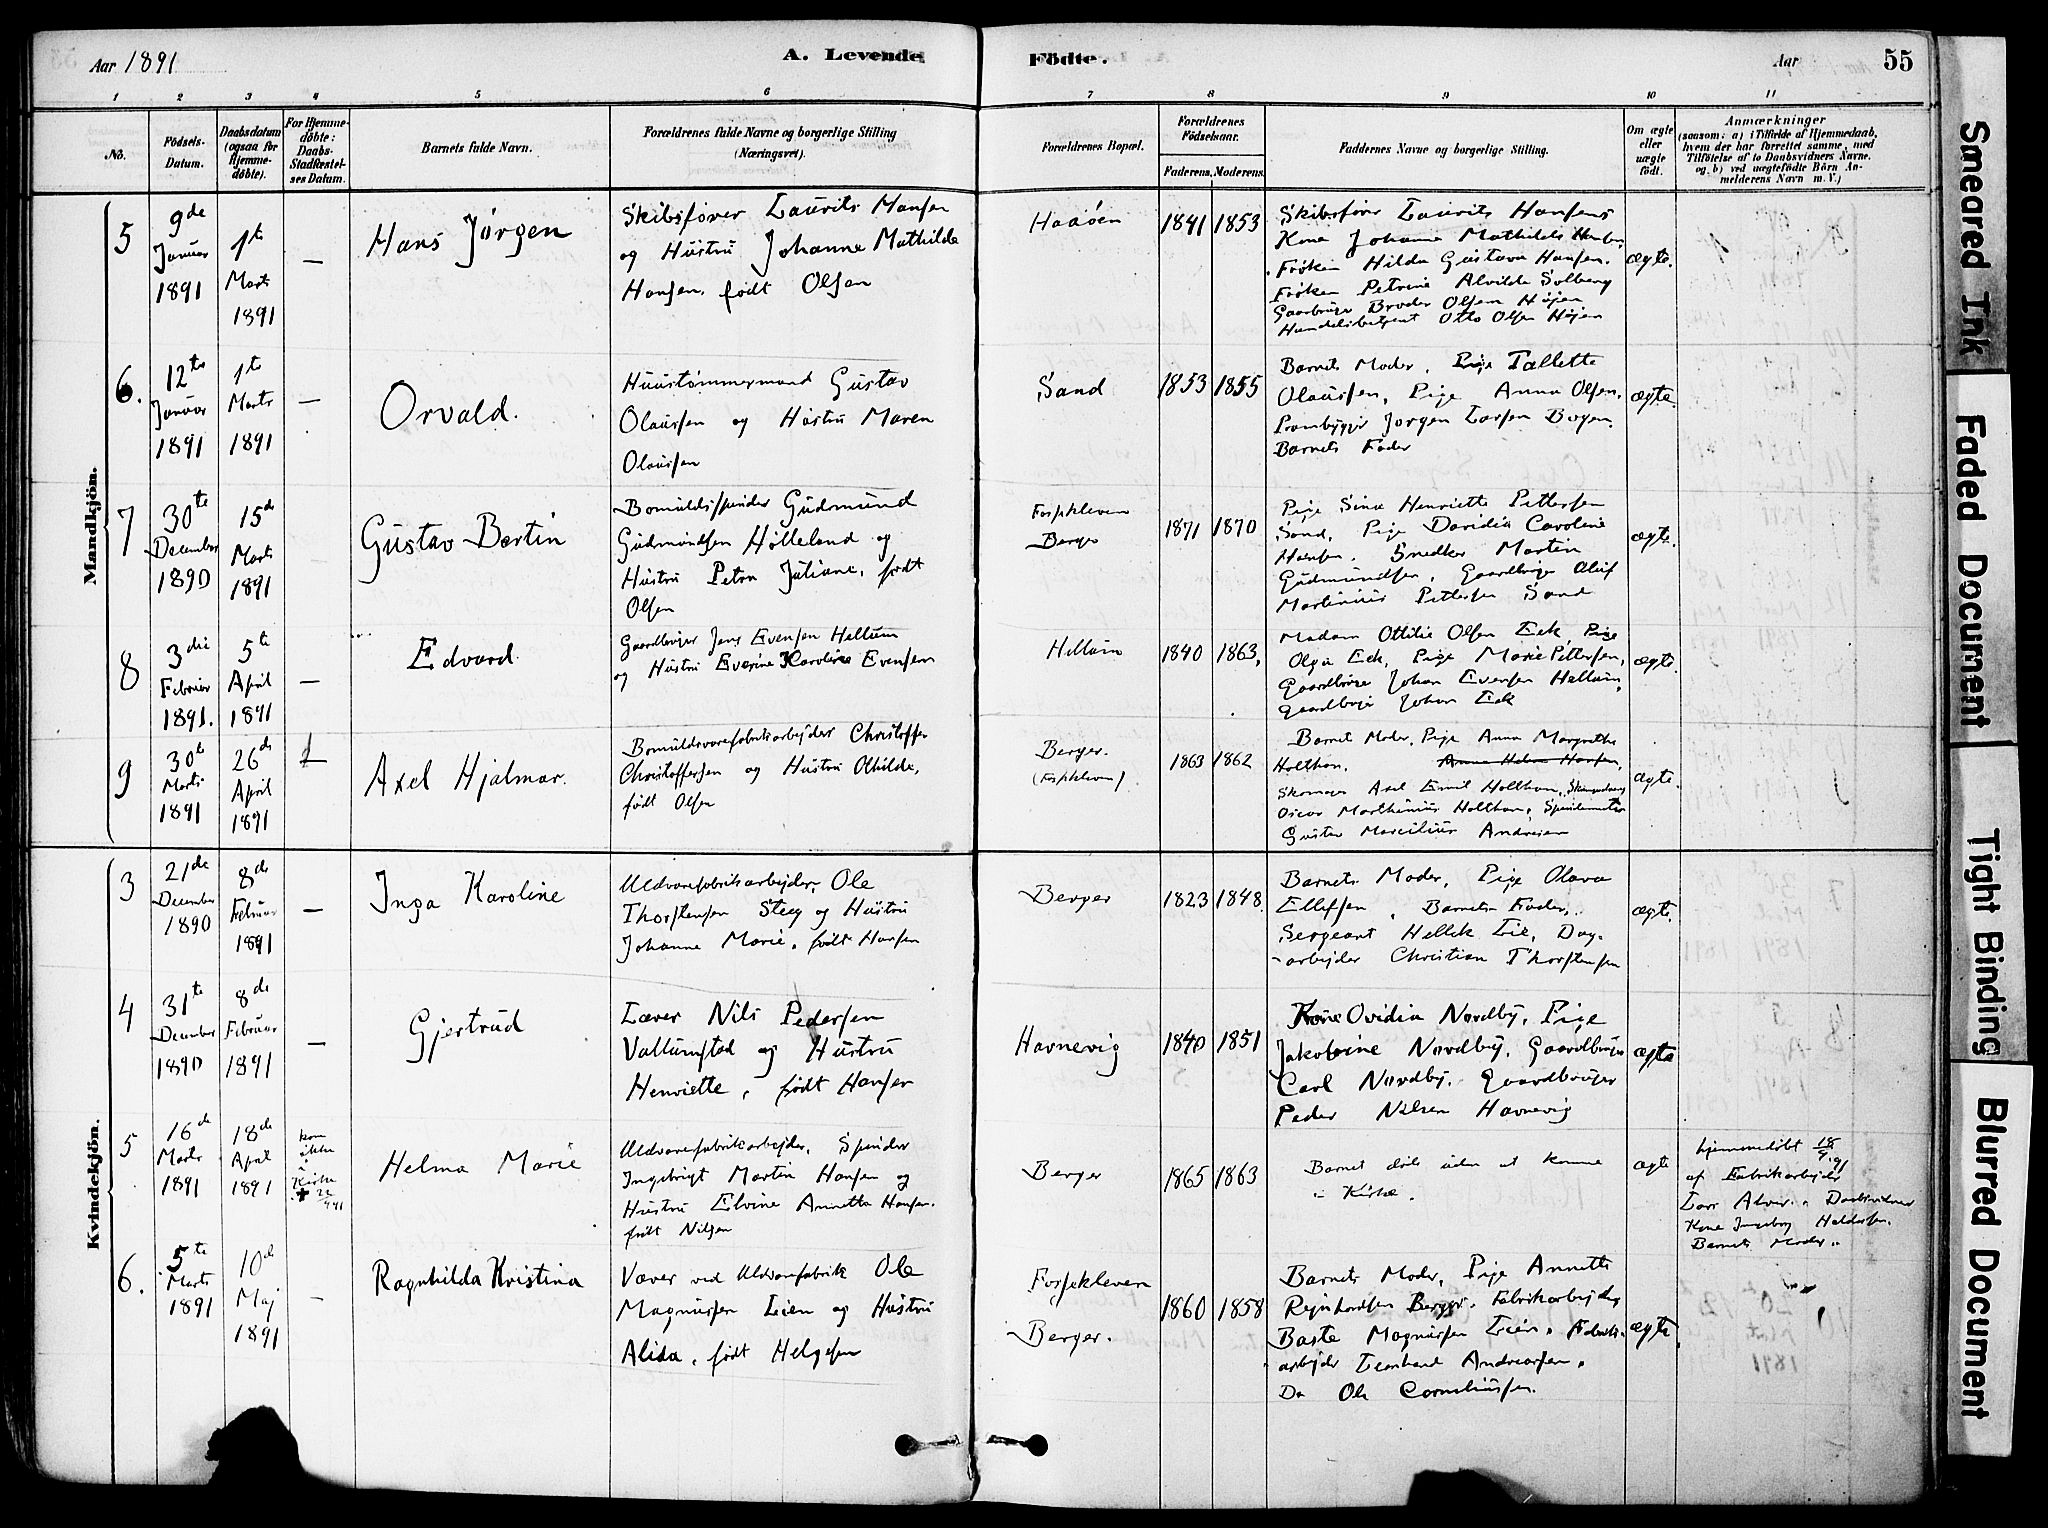 Aar 1891
A. Levende
Födte.
Aar
55
1 2 3 4 5 6 7 8 9 10 11
No.
Födsels-
Datum.
Daabsdatum
(ogsaa for
Hjemme-
döbte).
For Hjemme-
döbte:
Daabs-
Stadfæstel-
ses Datum.
Barnets fulde Navn.
Forældrenes fulde Navne og borgerlige Stilling
(Næringsvei).
Forældrenes Bopæl.
Forældrenes
Födselsaar.
Faderens. Moderens.
Faddernes Navne og borgerlige Stilling.
Om ægte
eller
uægte
födt.
Anmærkninger
(saasom: a) i Tilfælde af Hjemmedaab,
hvem der har forrettet samme, med
Tilföielse af to Daabsvidners Navne.
og. b) ved uægtefödte Börn An-
melderens Navn m. V.)
Mandkjön.
5
9de
Januar
1891
1ste
Marts
1891
—
Hans Jørgen
Skibsfører Laurits Hansen
og Hustru Johanne Mathilde
Hansen, født Olsen
Haaøen
1841 1853
Skibsfører Laurits Hansens
Kone Johanne Mathilde Hansen,
Frøken Hilda Gustava Hansen.
Frøken Petrine Alvilde Solberg
Gaardbruger Broder Olsen Højen
Handelsbetjent Otto Olsen Højen
ægte.
6.
12te
Januar
1891
1ste
Marts
1891
—
Orvald.
Huustømmermand Gustav
Olaussen og Hustru Maren
Olaussen
Sand
1853 1855
Barnets Moder, Pige Tallette
Olaussen, Pige Anna Olsen,
Prambygger Jørgen Larsen Bergen.
Barnets Fader
ægte.
7
30te
December
1890
15de
Marts
1891
Gustav Bertin
Bomuldsspinder Gudmund
Gudmundsen Hølleland og
Hustru Petra Juliane, født
Olsen
Fossekleven
Berger
1871 1870
Pige Sina Henriette Pettersen
Sand, Pige Davidia Caroline
Hansen. Snedker Martin
Gudmundsen, Gaardbruger Oluf
Martinius Pettersen Sand
ægte.
8
3die
Februar
1891.
5te
April
1891
—
Edvard
Gaardbruger Jens Evensen Hellum
og Hustru Everine Karoline Evensen
Hellum
1840 1863.
Madam Ottilie Olsen Eek, Pige
Olga Eek, Pige Marie Pettersen,
Gaardbruger Johan Evensen Hellum,
Gaardbruger Johan Eek
ægte.
9
30te
Marts
1891
26de
April
1891
Axel Hjalmar.
Bomuldsvarefabrikarbejder Christoffer
Christoffersen og Hustru Othilde,
født Olsen
Berger.
(Fossekleven)
1863 1862
Barnets Moder, Pige Anna Margrethe
Holthan. Anna Helene Hansen,
Skomager Axel Emil Holthan,
Oscar Marthinius Holthan, Spindemester
Gustav Marcilius Andresen
ægte.
Kvindekjön.
3
21de
December
1890
8de
Februar
1891
—
Inga Karoline
Uldvarefabrikarbejder, Ole
Thorstensen Steeg og Hustru
Johanne Marie, født Hansen
Berger
1823 1848.
Barnets Moder, Pige Olava
Ellefsen, Barnets Fader,
Sergeant Hellek Lie, Dag-
arbejder Christian Thorstensen
ægte.
4
31te
December
1890
8de
Februar
1891
—
Gjertrud
Læver Nils Pedersen
Vallumstad og Hustru
Henriette, født Hansen
Havnevig
1840 1851
Kone Ovidia Nordby, Pige
Jakobine Nordby, Gaardbruger
Carl Nordby, Gaardbruger
Peder Nilsen Havnevig
ægte
5
16de
Marts
1891
18de
April
1891
kom
ikke
i
Kirke
† 22/4 91
Helma Marie
Uldvarefabrikarbejder, Spinder
Ingebrigt Martin Hansen og
Hustru Elvine Annette Hansen.
født Nilsen
Berger
1865 1863
Barnet døde uden at komme
i Kirke.
ægte
hjemmedøbt 18/4 91
af Fabrikarbejder
Lars Alver. Daabsvidner
Kone Ingeborg Haldorsen.
Barnets Moder.
6.
5te
Marts
1891
10de
Maj
1891
—
Ragnhilda Kristina
Væver ved Uldvarefabrik Ole
Magnussen Leien og Hustru
Alida, født Helgesen
Fossekleven
Berger.
1860 1858
Barnets Moder, Pige Annette
Rejnhardsen Berger. Fabrikarbejder
Baste Magnussen Leien. Fabrik-
arbejder Leonhard Andreassen.
Do Ole Corneliussen.
ægte.
Smeared Ink
Faded Document
Tight Binding
Blurred Document